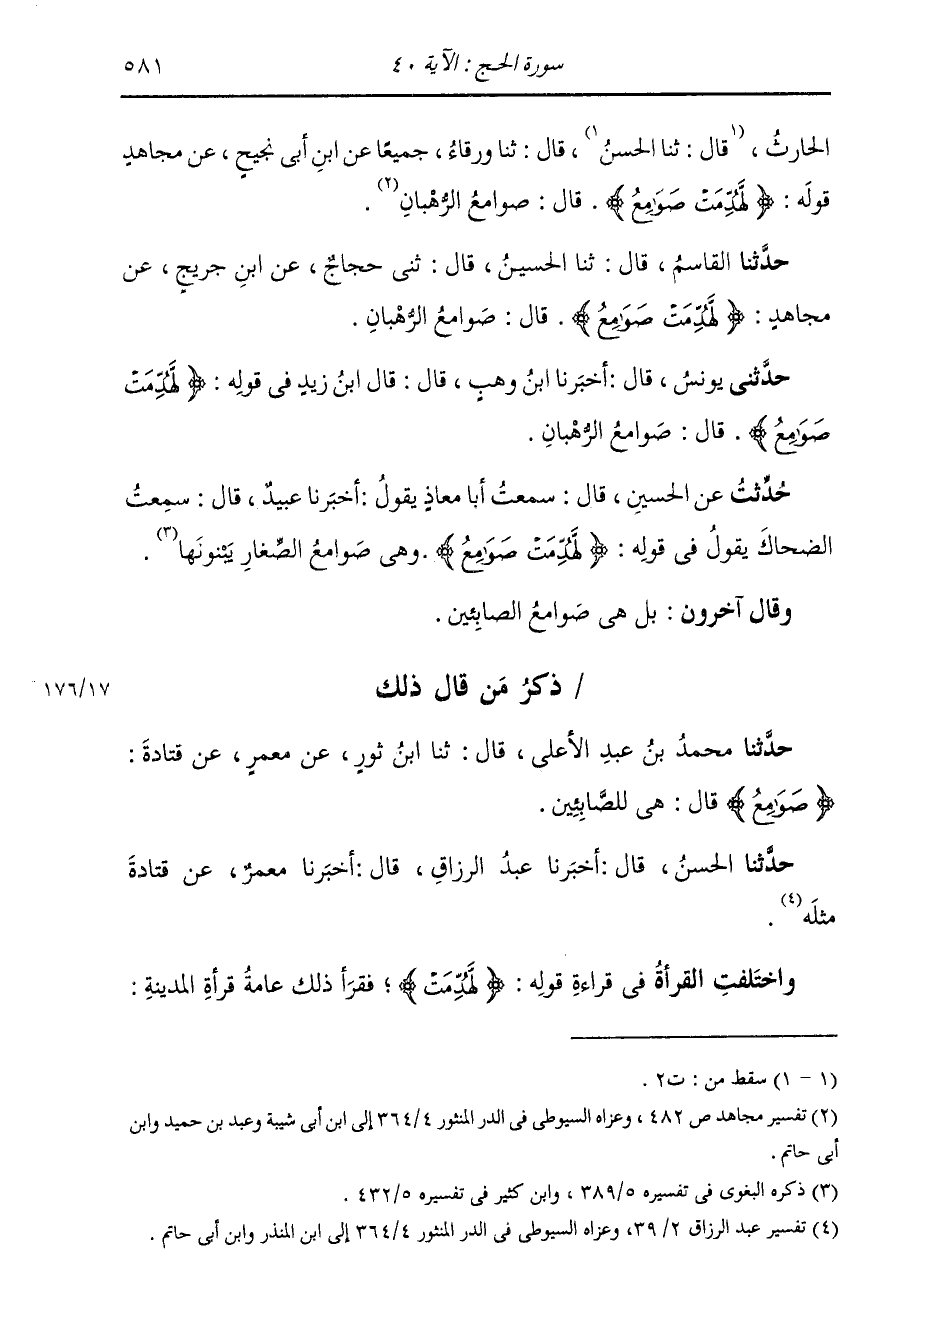 سورة الحج : الآية ٤٠ ٥٨١
الحارثُ ، (١ قال : ثنا الحسنُ ١) ، قال : ثنا ورقاءُ ، جميعًا عن ابنِ أبى نجيحٍ ، عن مجاهدٍ
قولَه : ﴿ لَّهُدِّمَتْ صَوَامِعُ ﴾ . قال : صوامعُ الرُّهْبانِ(٢) .
حدَّثنا القاسمُ ، قال : ثنا الحسينُ ، قال : ثنى حجاجٌ ، عن ابنِ جريجٍ ، عن
مجاهدٍ : ﴿ لَّهُدِّمَتْ صَوَامِعُ ﴾ . قال : صَوامعُ الرُّهْبانِ .
حدَّثنى يونسُ ، قال : أخبَرنا ابنُ وهبٍ ، قال : قال ابنُ زيدٍ فى قولِه : ﴿ لَّهُدِّمَتْ
صَوَامِعُ ﴾ . قال : صَوامعُ الرُّهْبانِ .
حُدِّثتُ عن الحسينِ ، قال : سمعتُ أبا معاذٍ يقولُ : أخبَرنا عبيدٌ ، قال : سمِعتُ
الضحاكَ يقولُ فى قولِه : ﴿ لَّهُدِّمَتْ صَوَامِعُ ﴾ . وهى صَوامعُ الصِّغارِ يَبْنونَها(٣) .
وقال آخرون : بل هى صَوامعُ الصابِئين .
/ ذكرُ مَن قال ذلك ١٧٦/١٧
حدَّثنا محمدُ بنُ عبدِ الأعلى ، قال : ثنا ابنُ ثورٍ ، عن معمرٍ ، عن قتادةَ :
﴿ صَوَامِعُ ﴾ قال : هى للصَّابِئِين .
حدَّثنا الحسنُ ، قال : أخبَرنا عبدُ الرزاقِ ، قال : أخبَرنا معمرٌ ، عن قتادةَ
مثلَه(٤) .
واختَلفتِ القرأةُ فى قراءةِ قولِه : ﴿ لَّهُدِّمَتْ ﴾ ؛ فقرَأ ذلك عامةُ قرأةِ المدينةِ :
(١ - ١) سقط من : ت٢ .
(٢) تفسير مجاهد ص ٤٨٢ ، وعزاه السيوطى فى الدر المنثور ٣٦٤/٤ إلى ابن أبى شيبة وعبد بن حميد وابن
أبى حاتم .
(٣) ذكره البغوى فى تفسيره ٣٨٩/٥ ، وابن كثير فى تفسيره ٤٣٢/٥ .
(٤) تفسير عبد الرزاق ٢/ ٣٩، وعزاه السيوطى فى الدر المنثور ٣٦٤/٤ إلى ابن المنذر وابن أبى حاتم .